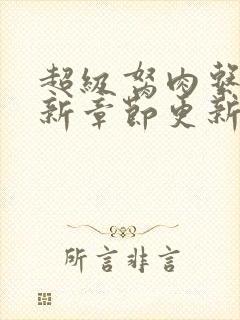 超级弩肉系
新章节更新
所言非言